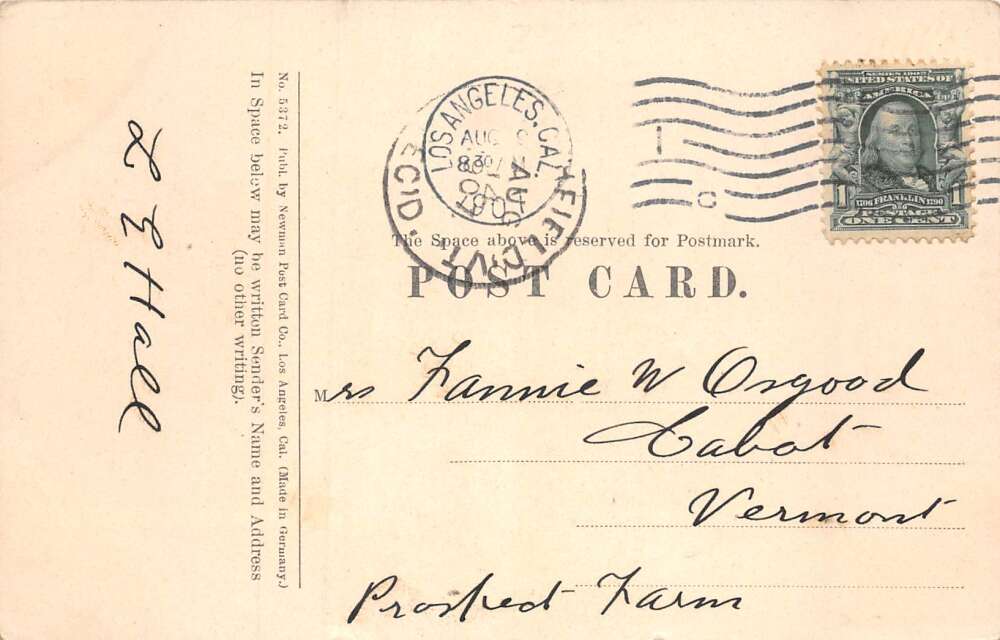 No. 5372. Publ. by Newman Post Card Co., Los Angeles, Cal. (Made in Germany.)
In Space below may be written Sender's Name and Address
(no other writing).
L E Hall
LOS ANGELES, CAL.
AUG
830
REC'D.
FIELD, VT.
AUG
SERIES 1902
UNITED STATES OF
AMERICA
1 1
1706 FRANKLIN 1790
POSTAGE
ONE CENT
The Space above is reserved for Postmark.
POST CARD.
Mrs Fannie W Osgood
Cabot
Vermont
Prospect Farm